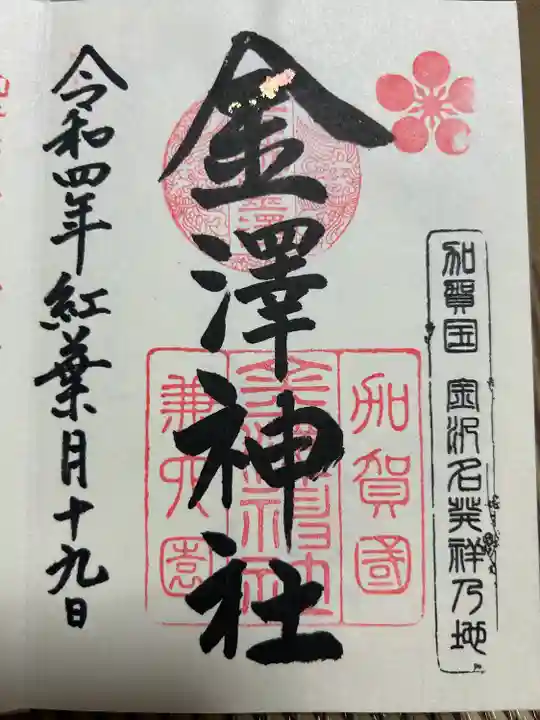 加賀国 金沢名発祥乃地
金澤神社
加賀國
金澤神社
兼六園
金澤
令和四年紅葉月十九日